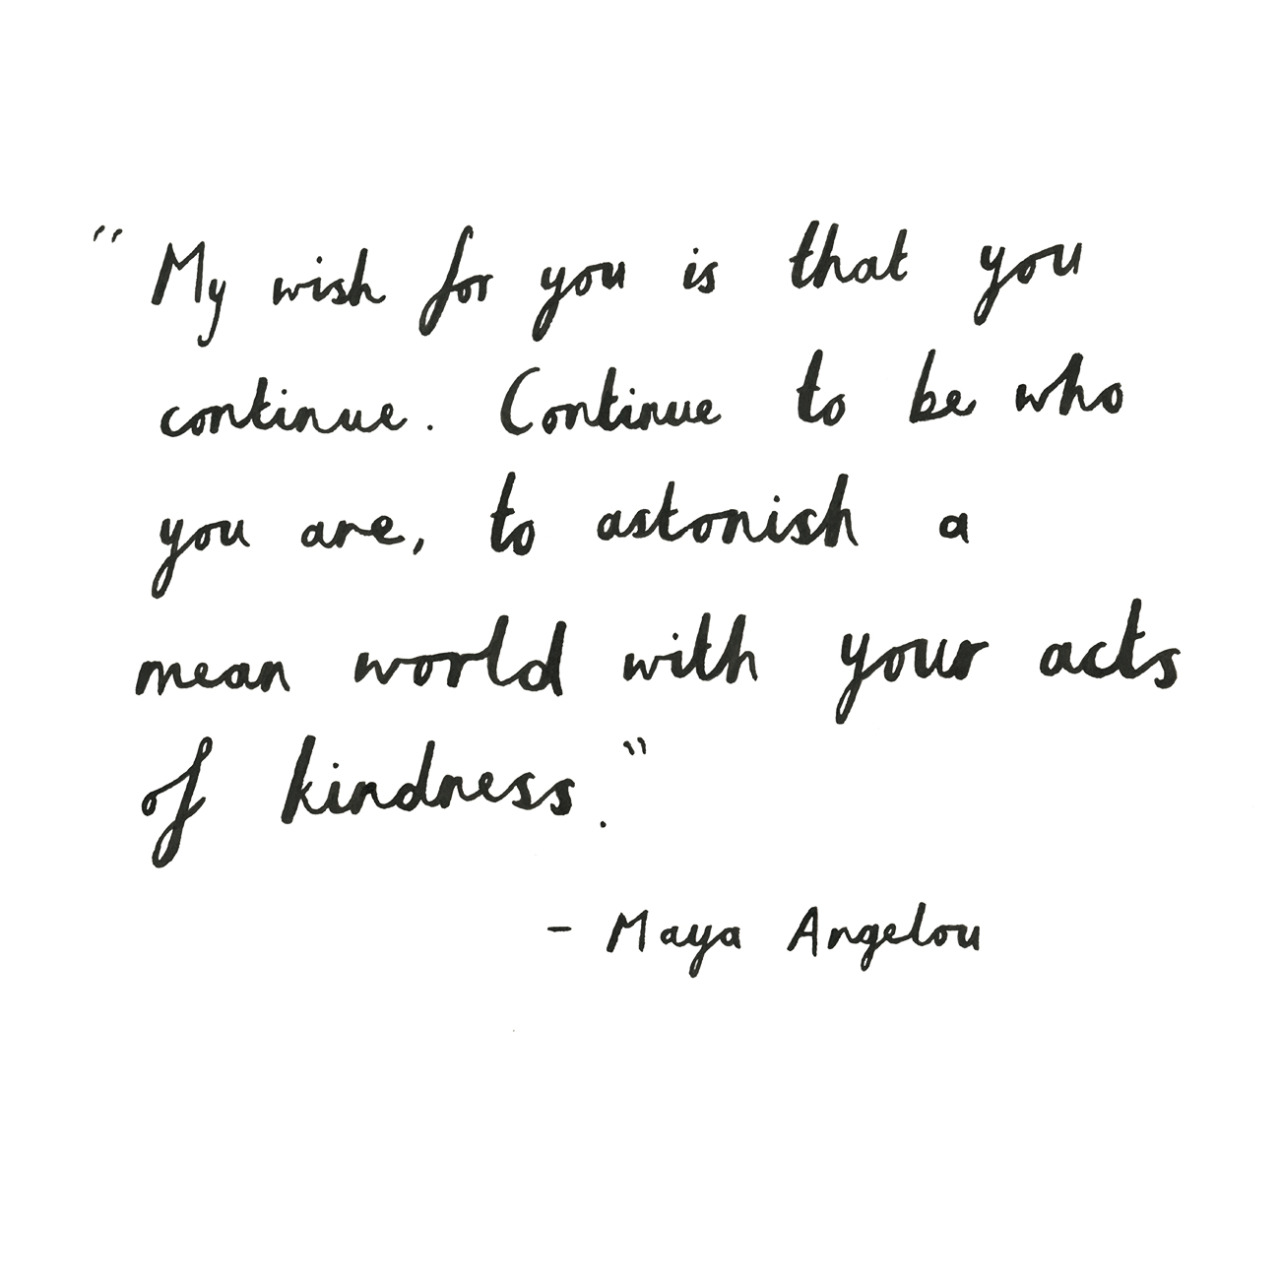 "My wish for you is that you
continue. Continue to be who
you are, to astonish a
mean world with your acts
of kindness."
- Maya Angelou